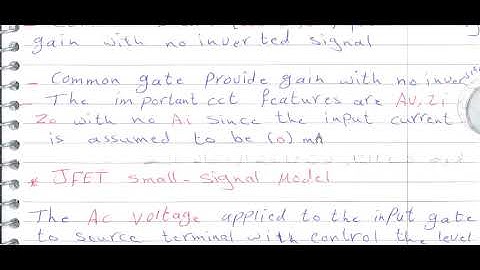 gain with no inverted signal
- Common gate Provide gain with no inver
The important cct features are Av, Zi
Zo with no Ai since the input current
is assumed to be (0) mA
* JFET small-signal Model
The Ac voltage applied to the input gate
to source terminal with control the level